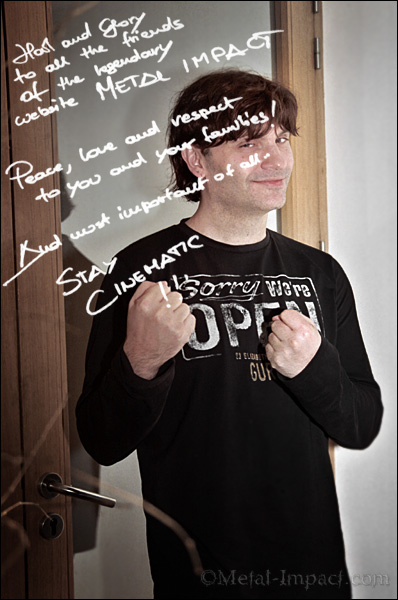 Hail and Glory
to all the friends
of the legendary
website METAL IMPACT
Peace, love and respect
to you and your families!
And most important of all..
STAY
CINEMATIC
!!
Sorry We're
OPEN
©Metal-Impact.com